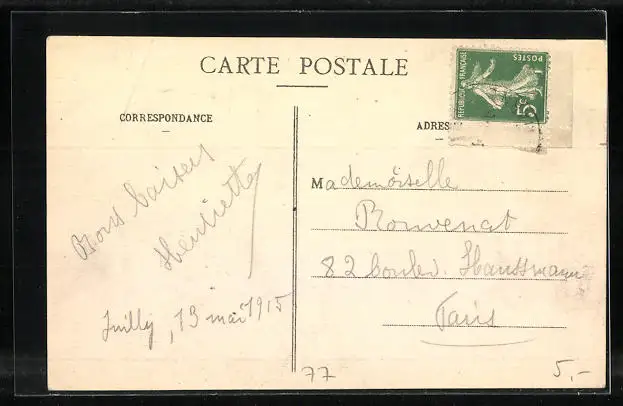 CARTE POSTALE
CORRESPONDANCE
ADRES
REPUBLIQUE FRANÇAISE
POSTES
5c
Bons baisers
Henriette
Juilly, 13 mai 1915
Mademoiselle
Rouvenat
82 boulev. Haussmann
Paris
77
5,-